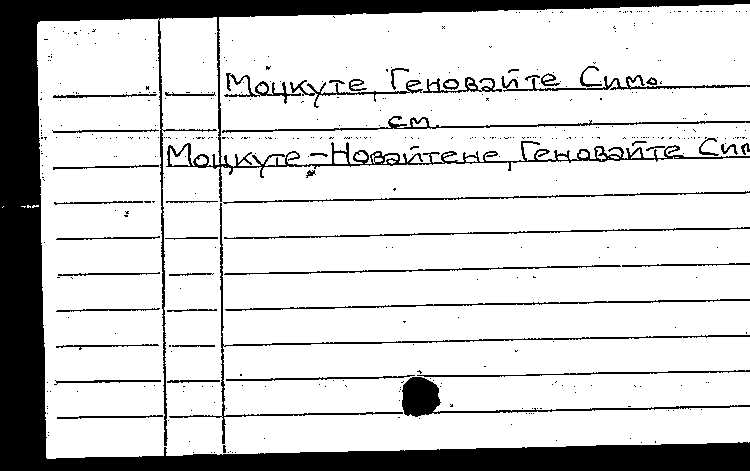 Моцкуте, Геновайте Симо
см
Моцкуте-Новайтене, Геновайте Сим